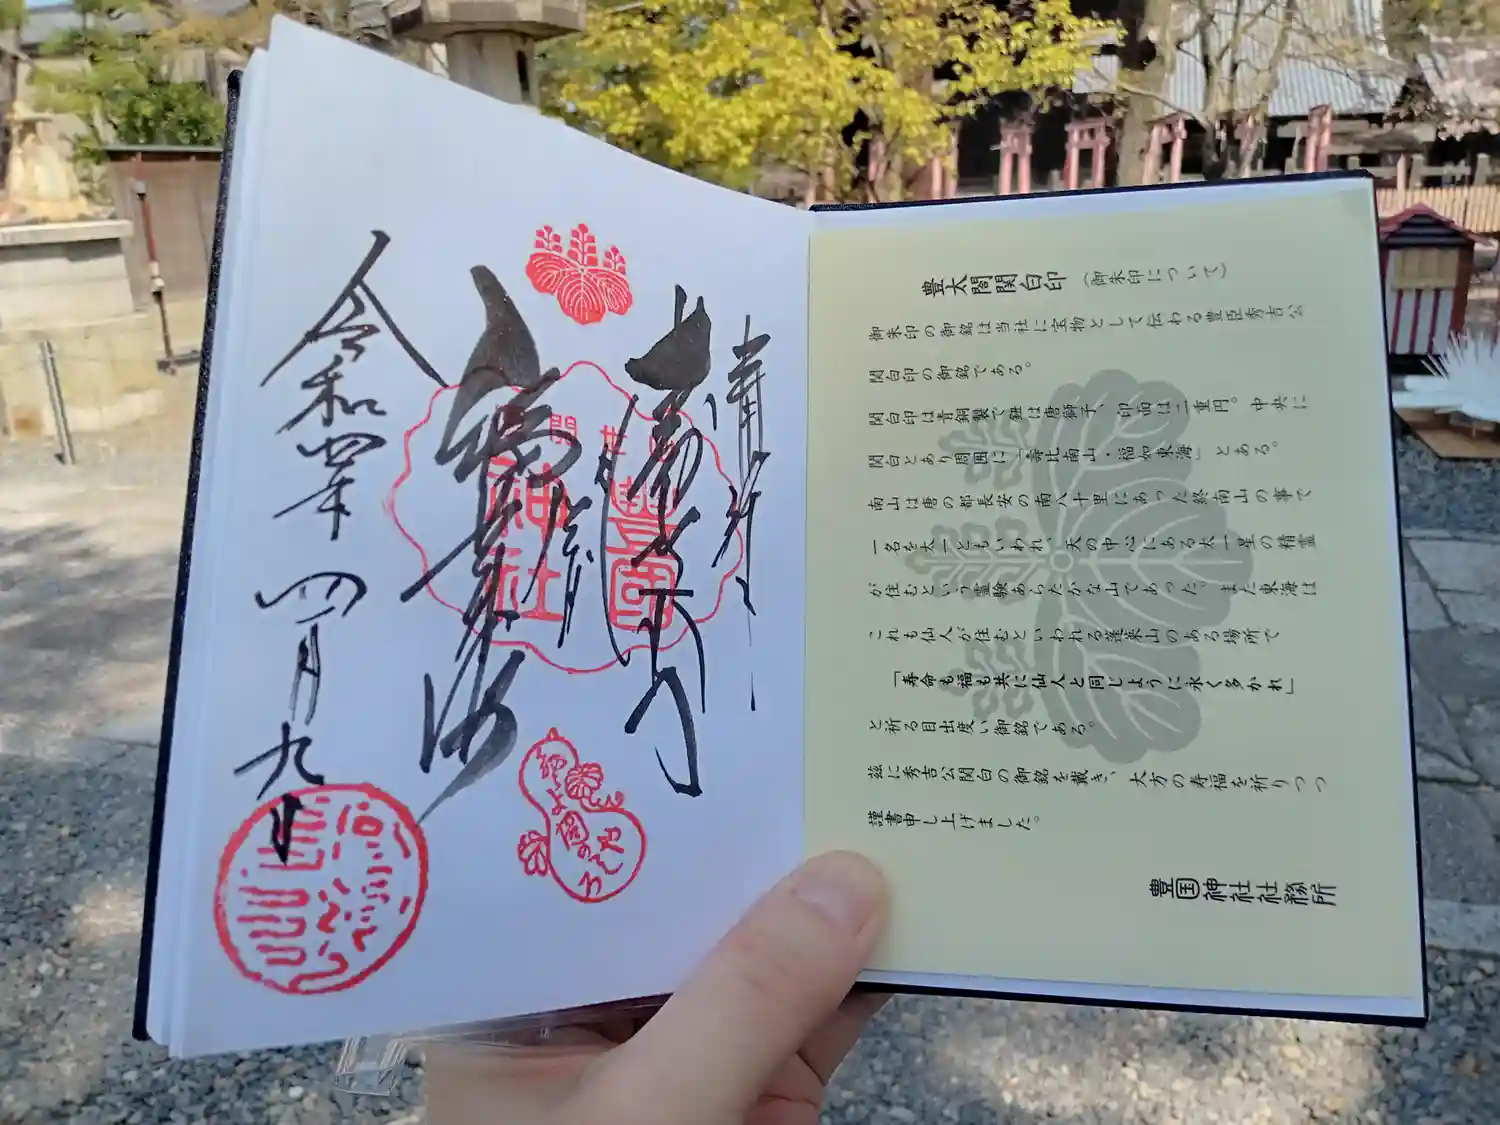 奉拝
寿比南山
福如東海
令和四年四月九日
豊国
神社
豊太閤関白印（御朱印について）
御朱印の御銘は当社に宝物として伝わる豊臣秀吉公
関白印の御銘である。
関白印は青銅製で鈕は唐獅子、印面は二重円。中央に
関白とあり周囲に「壽比南山・福如東海」とある。
南山は唐の都長安の南八十里にあった終南山の事で
一名を太一ともいわれ、天の中心にある太一星の精霊
が住むという霊験あらたかな山であった。また東海は
これも仙人が住むといわれる蓬莱山のある場所で
「寿命も福も共に仙人と同じように永く多かれ」
と祈る目出度い御銘である。
茲に秀吉公関白の御銘を戴き、大方の寿福を祈りつつ
謹書申し上げました。
豊国神社社務所